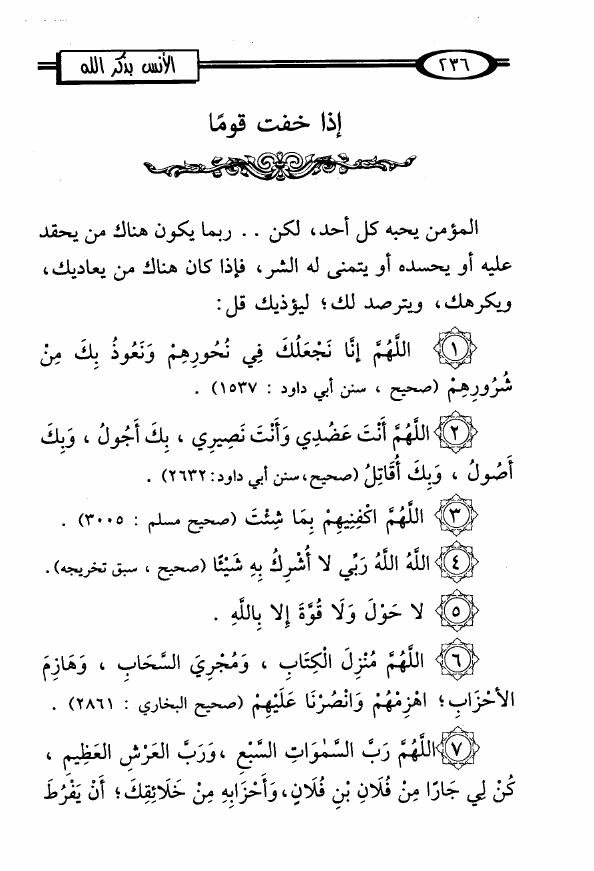 ٢٣٦
الأنس بذكر الله
إذا خفت قومًا
المؤمن يحبه كل أحد، لكن .. ربما يكون هناك من يحقد
عليه أو يحسده أو يتمنى له الشر، فإذا كان هناك من يعاديك،
ويكرهك، ويترصد لك؛ ليؤذيك قل:
١ اللَّهُمَّ إِنَّا نَجْعَلُكَ فِي نُحُورِهِمْ وَنَعُوذُ بِكَ مِنْ
شُرُورِهِمْ (صحيح ، سنن أبي داود : ١٥٣٧) .
٢ اللَّهُمَّ أَنْتَ عَضُدِي وَأَنْتَ نَصِيرِي ، بِكَ أَجُولُ ، وَبِكَ
أَصُولُ ، وَبِكَ أُقَاتِلُ (صحيح، سنن أبي داود: ٢٦٣٢) .
٣ اللَّهُمَّ اكْفِنِيهِمْ بِمَا شِئْتَ (صحيح مسلم : ٣٠٠٥) .
٤ اللَّهُ اللَّهُ رَبِّي لا أُشْرِكُ بِهِ شَيْئًا (صحيح ، سبق تخريجه).
٥ لا حَوْلَ وَلَا قُوَّةَ إِلا بِاللَّهِ .
٦ اللَّهُمَّ مُنْزِلَ الْكِتَابِ ، وَمُجْرِيَ السَّحَابِ ، وَهَازِمَ
الأَحْزَابِ؛ اهْزِمْهُمْ وَانْصُرْنَا عَلَيْهِمْ (صحيح البخاري : ٢٨٦١) .
٧ اللَّهُمَّ رَبَّ السَّمَٰوَاتِ السَّبْعِ ،وَرَبَّ الْعَرْشِ الْعَظِيمِ ،
كُنْ لِي جَارًا مِنْ فُلَانِ بْنِ فُلَانٍ، وَأَحْزَابِهِ مِنْ خَلَائِقِكَ؛ أَنْ يَفْرُطَ